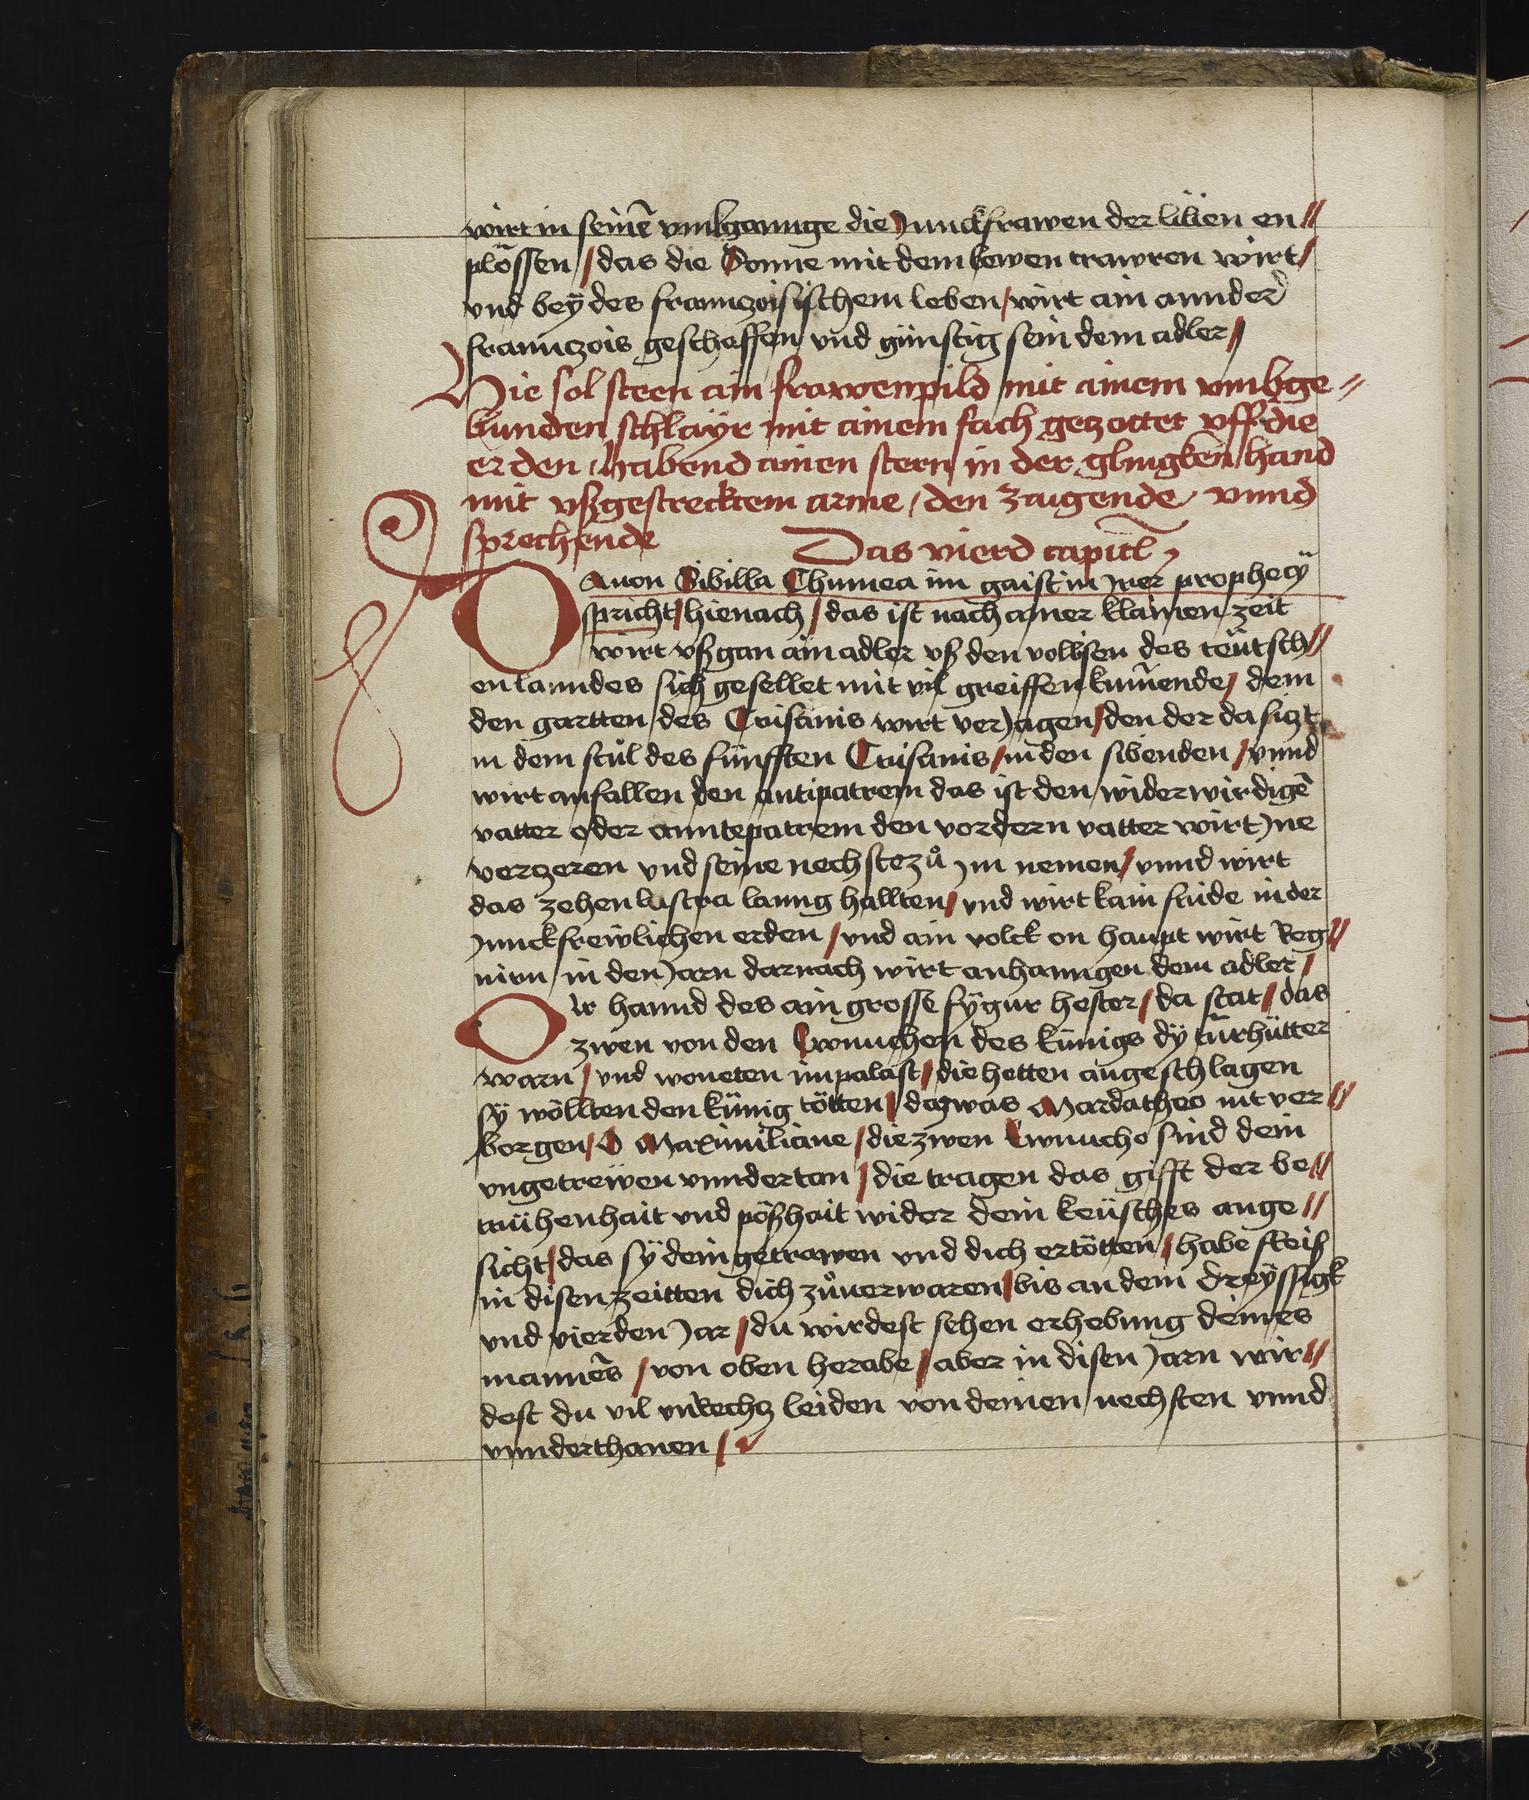 wirt in seinē vmbgannge die Junckfrawen der lilien en//
plössen / das die Sonne mit dem lewen trawren wirt /
vnd bey des franntzoisischem leben / wirt ain annder
franntzois geschaffen vnd günstig sein dem adler //
Hie sol steen ain frawenpild mit ainem vmbge//
bunden schlayr mit ainem fach gezottet vff die
erden / habend ainen stern in der glingken hand
mit vßgestrecktem arme / den zaigende vnnd
sprechende
Das vierd capitl
Dauon Sibilla Chumea im gaist in Jrer prophecÿ
spricht / hienach / das ist nach ainer klainen zeit
wirt vßgan ain adler vß den vollsen des teütsch//
en lanndes sich gesellet mit vil greiffen kumende / dem
den gartten des Crisanis wirt verJagen / den der da sitzt
in dem stůl des fünfften Crisanis / in den sibenden / vnnd
wirt anfallen den antipatrem das ist den widerwirdigē
vatter oder anntepatrem den vordern vatter wirt Jne
vertzeren vnd seine nechste zů Jm nemen / vnnd wirt
das zehen lustra lanng hallten / vnd wirt kain fride in der
Junckfrewlichen erden / vnd ain volck on haupt wirt Reg//
nirn / in den Jarn darnach wirt anhanngen dem adler /
Dir hannd des ain grosse fÿgur hester / da stat / das
zwen von den Ewnuchen des künigs dÿ türhütter
warn / vnd woneten im palast / die hetten angeschlagen
sÿ wöllten den künig tötten / das was Mardatheo nit ver//
borgen / O Maximiliane / die zwen Ewnucho sind dein
vngetrewen vnndertan / die tragen das gifft der be//
trübenhait vnd pößhait wider dein keüsches ange//
sicht / das sÿ dein getrawen vnd dich ertötten / habe fleiß
in disen zeitten dich zůuerwaren / bis an dein dreÿssigk
vnd vierden Jar / du wirdest sehen erhebung deines
mannēs / von oben herabe / aber in disen Jarn wir//
dest du vil vnrechtz leiden von deinen nechsten vnnd
vnnderthanen /